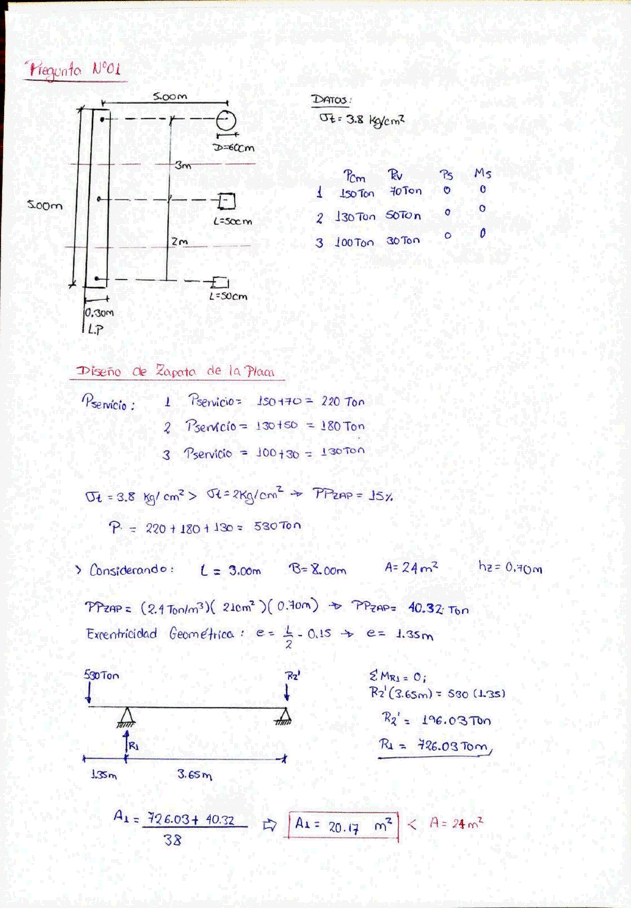 Pregunta N°01
5.00m
D=60cm
3m
5.00m
L=50cm
2m
L=50cm
0.30m
L.P
DATOS:
σt = 3.8 kg/cm²
Pcm Pv Ps Ms
1 150Ton 70Ton 0 0
2 130Ton 50Ton 0 0
3 100Ton 30Ton 0 0
Diseño de Zapata de la Placa
Pservicio: 1 Pservicio= 150+70 = 220 Ton
2 Pservicio= 130+50 = 180 Ton
3 Pservicio = 100+30 = 130Ton
σt = 3.8 kg/cm² > σt = 2kg/cm² → PPZAP = 15%
P. = 220 + 180 + 130 = 530Ton
> Considerando: L = 3.00m B=8.00m A=24m² hz = 0.70m
PPZAP = (2.4Ton/m³)( 21cm² )( 0.70m) → PPZAP= 40.32 Ton
Excentricidad Geométrica: e = L/2 - 0.15 → e= 1.35m
530Ton
R2'
R1
1.35m 3.65m
ΣMR1 = 0;
R2'(3.65m) = 530 (1.35)
R2' = 196.03Ton
R1 = 726.03Tom,
A1 = 726.03 + 40.32 / 38 ⇨ A1 = 20.17 m² < A = 24m²